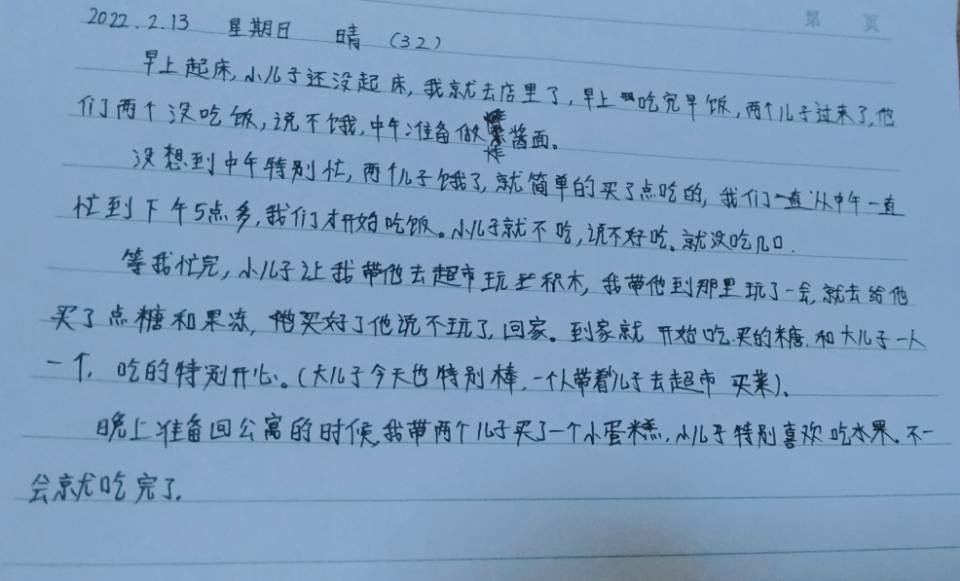 第 页
2022.2.13 星期日 晴 (32)
早上起床,小儿子还没起床,我就去店里了,早上吃完早饭,两个儿子过来了,他
们两个没吃饭,说不饿,中午准备做炸酱面。
没想到中午特别忙,两个儿子饿了,就简单的买了点吃的,我们一直从中午一直
忙到下午5点多,我们才开始吃饭。小儿子就不吃,说不好吃。就没吃几口.
等我忙完,小儿子让我带他去超市玩积木,我带他到那里玩了一会,就去给他
买了点糖和果冻,他买好了他说不玩了,回家。到家就开始吃买的糖,和大儿子一人
一个,吃的特别开心。(大儿子今天也特别棒,一个人带着儿子去超市买菜)。
晚上准备回公寓的时候,我带两个儿子买了一个小蛋糕,小儿子特别喜欢吃水果。不一
会就吃完了.